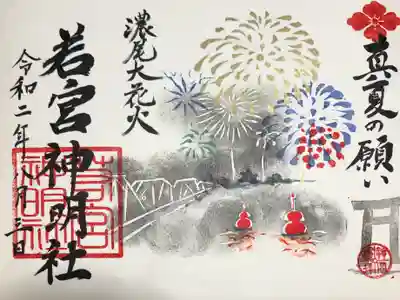 真夏の願い
濃尾大花火
若宮神明社
令和二年八月三日